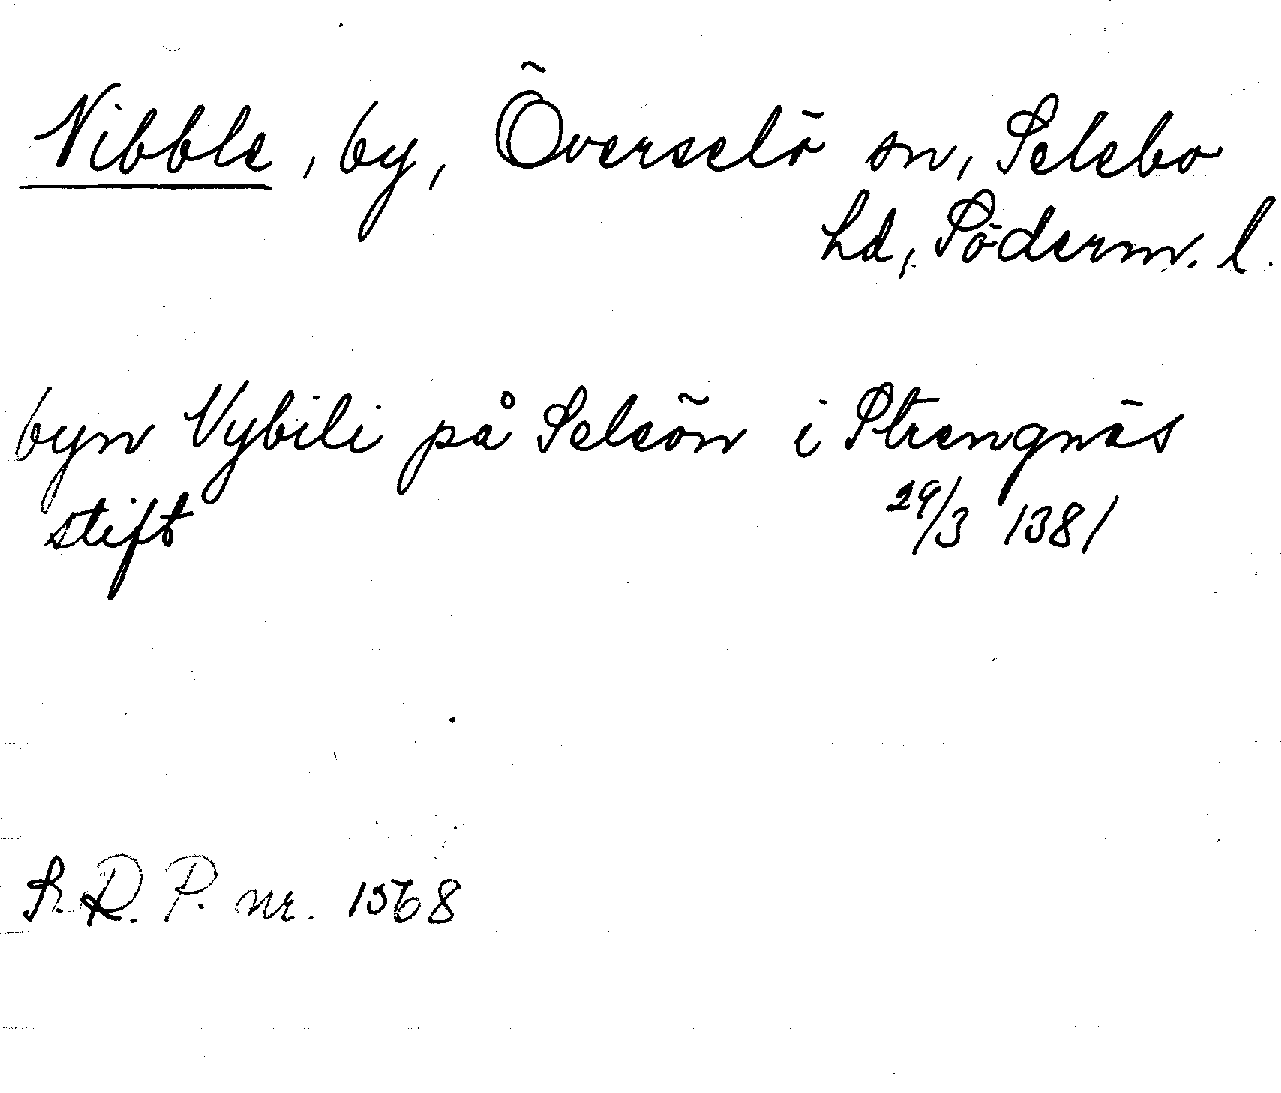 Nibble, by, Överselö sn, Selebo
hd, Söderm. l.
byn Vybili på Seleön i Strengnäs
stift 29/3 1381
Sv. R. P. nr. 1568